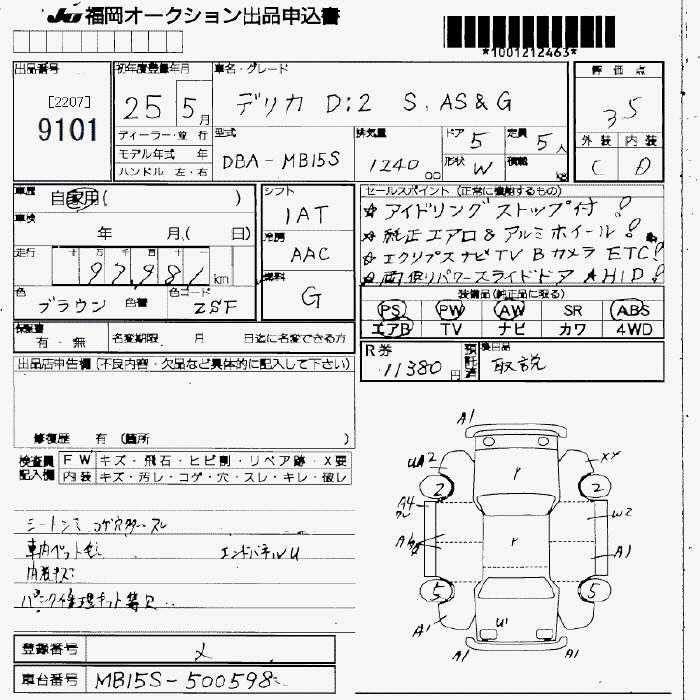 JU 福岡オークション出品申込書
*1001212463*
出品番号
[2207]
9101
初年度登録年月
25 5月
ディーラー・並行
モデル年式 年
ハンドル 左・右
車名・グレード
デリカ D:2 S. AS&G
型式
DBA-MB15S
排気量
1240 cc
ドア 5
形状 W
定員 5人
積載 kg
評価点
3.5
外装 内装
C D
車歴
自家用( )
車検
年 月( 日)
走行
十 万 千 百 十 一
97981 km
色
ブラウン 色替
色コード
ZSF
シフト
IAT
冷房
AAC
燃料
G
セールスポイント (正常に機能するもの)
☆ アイドリングストップ付!
☆ 純正エアロ&アルミホイール!
☆ エクリプスナビ TV Bカメラ ETC!
☆ 両側パワースライドドア AHID!
装備品(純正品に限る)
PS PW AW SR ABS
エアB TV ナビ カワ 4WD
保証書
有・無
名変期限 月 日迄に名変できる方
R券
11380円
預託済
後日品
取説
出品店申告欄 (不良内容・欠品など具体的に記入して下さい)
修復歴 有 (箇所 )
検査員記入欄
FW キズ・飛石・ヒビ割・リペア跡・X要
内装 キズ・汚レ・コゲ・穴・スレ・キレ・破レ
シートシミ コゲ穴
車内ペット毛 エンドパネルU
内装キズ
パンク修理キット
A1
UA2
XX
2
2
A4
W2
A1
5
5
U1
A1
A1
A1
登録番号
メ
車台番号
MB15S-500598